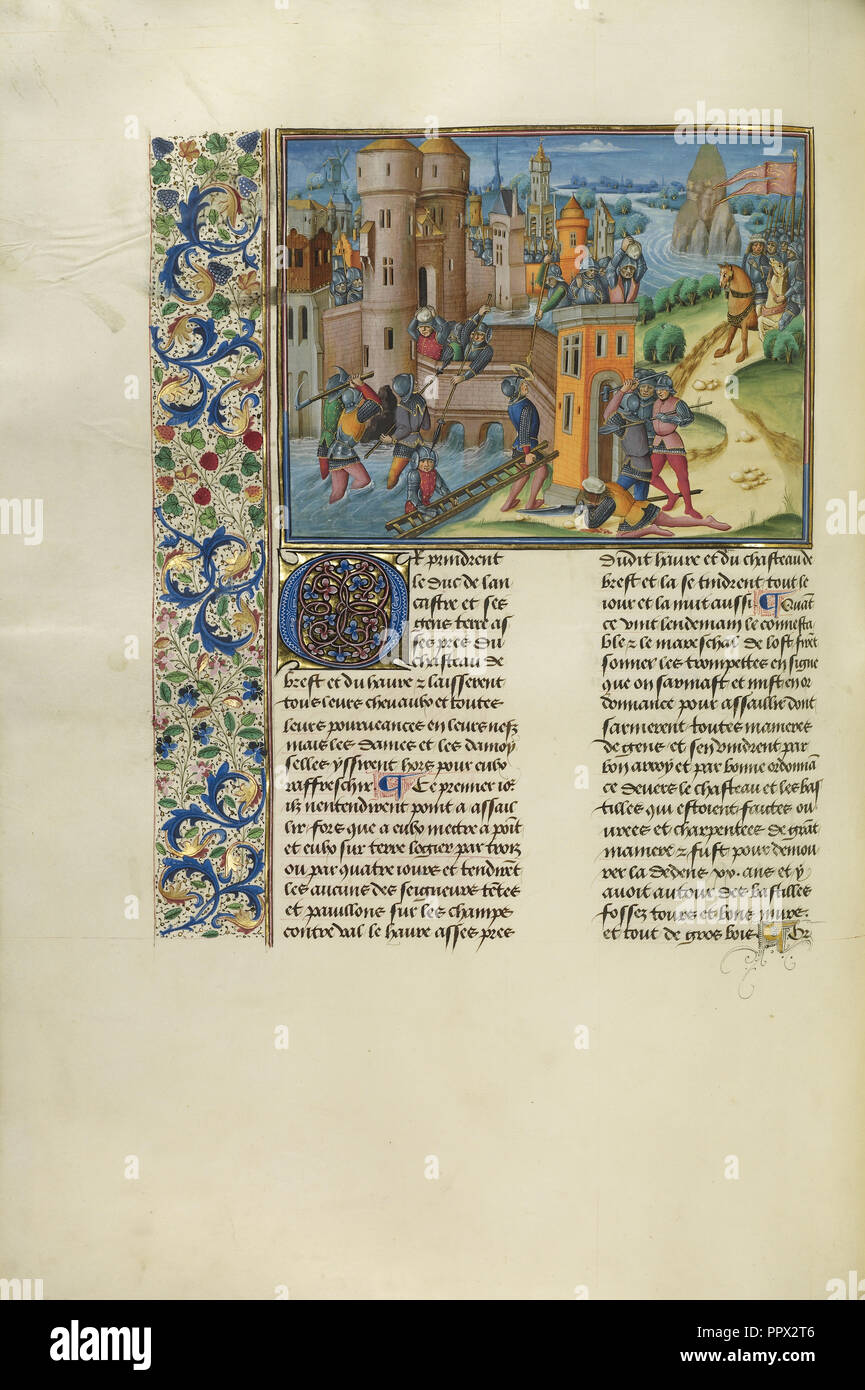 Or prindrent
le duc de lan
castre et ses
gens terre as
ses pres du
chasteau de
brest et du havre & laisserent
tous leurs chevaulx et toutes
leurs pourveances en leurs nefz
mais les dames et les damoy
selles yssirent hors pour eulx
raffreschir. Ce premier io²
ilz nentendirent point a assail
lir fors que a eulx mettre a point
et eulx sur terre logier par troiz
ou par quatre iours et tendirẽt
les aucuns des seigneurs tẽtes
et pavillons sur les champs
contre val le havre asses pres
dudit havre et du chasteau de
brest et la se tindrent tout le
iour et la nuit aussi. Quãt
ce vint lendemain le connesta
ble & le mareschal de lost firẽt
sonner les trompettes en signe
que on sarmast et mist en or
donnance pour assaillir dont
sarmerent toutes manieres
de gens et sen vindrent par
bon arroy et par bonne ordonnã
ce devers le chasteau et les bas
tilles qui estoient faites ou
vrees et charpentees de grãt
maniere & fust pour demou
rer la dedens xv. ans et y
avoit autour des bastilles
fossez tours et bons murs.
et tout de gros bois. Or
a
alamy
alamy
Image ID: PPX2T6
www.alamy.com